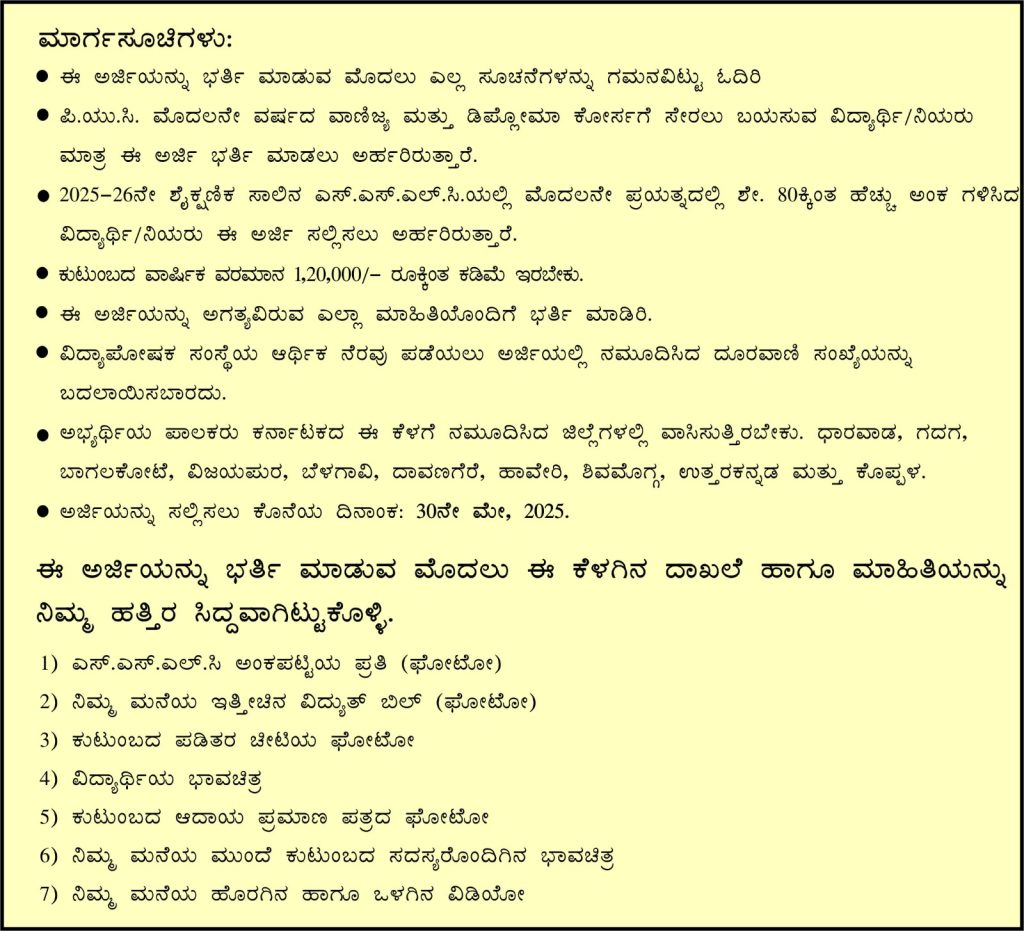 ಮಾರ್ಗಸೂಚಿಗಳು:
● ಈ ಅರ್ಜಿಯನ್ನು ಭರ್ತಿ ಮಾಡುವ ಮೊದಲು ಎಲ್ಲ ಸೂಚನೆಗಳನ್ನು ಗಮನವಿಟ್ಟು ಓದಿರಿ
● ಪಿ.ಯು.ಸಿ. ಮೊದಲನೇ ವರ್ಷದ ವಾಣಿಜ್ಯ ಮತ್ತು ಡಿಪ್ಲೋಮಾ ಕೋರ್ಸಗೆ ಸೇರಲು ಬಯಸುವ ವಿದ್ಯಾರ್ಥಿ/ನಿಯರು
ಮಾತ್ರ ಈ ಅರ್ಜಿ ಭರ್ತಿ ಮಾಡಲು ಅರ್ಹರಿರುತ್ತಾರೆ.
● 2025-26ನೇ ಶೈಕ್ಷಣಿಕ ಸಾಲಿನ ಎಸ್.ಎಸ್.ಎಲ್.ಸಿ.ಯಲ್ಲಿ ಮೊದಲನೇ ಪ್ರಯತ್ನದಲ್ಲಿ ಶೇ. 80ಕ್ಕಿಂತ ಹೆಚ್ಚು ಅಂಕ ಗಳಿಸಿದ
ವಿದ್ಯಾರ್ಥಿ/ನಿಯರು ಈ ಅರ್ಜಿ ಸಲ್ಲಿಸಲು ಅರ್ಹರಿರುತ್ತಾರೆ.
● ಕುಟುಂಬದ ವಾರ್ಷಿಕ ವರಮಾನ 1,20,000/- ರೂಕ್ಕಿಂತ ಕಡಿಮೆ ಇರಬೇಕು.
● ಈ ಅರ್ಜಿಯನ್ನು ಅಗತ್ಯವಿರುವ ಎಲ್ಲಾ ಮಾಹಿತಿಯೊಂದಿಗೆ ಭರ್ತಿ ಮಾಡಿರಿ.
● ವಿದ್ಯಾಪೋಷಕ ಸಂಸ್ಥೆಯ ಆರ್ಥಿಕ ನೆರವು ಪಡೆಯಲು ಅರ್ಜಿಯಲ್ಲಿ ನಮೂದಿಸಿದ ದೂರವಾಣಿ ಸಂಖ್ಯೆಯನ್ನು
ಬದಲಾಯಿಸಬಾರದು.
● ಅಭ್ಯರ್ಥಿಯ ಪಾಲಕರು ಕರ್ನಾಟಕದ ಈ ಕೆಳಗೆ ನಮೂದಿಸಿದ ಜಿಲ್ಲೆಗಳಲ್ಲಿ ವಾಸಿಸುತ್ತಿರಬೇಕು. ಧಾರವಾಡ, ಗದಗ,
ಬಾಗಲಕೋಟೆ, ವಿಜಯಪುರ, ಬೆಳಗಾವಿ, ದಾವಣಗೆರೆ, ಹಾವೇರಿ, ಶಿವಮೊಗ್ಗ, ಉತ್ತರಕನ್ನಡ ಮತ್ತು ಕೊಪ್ಪಳ.
● ಅರ್ಜಿಯನ್ನು ಸಲ್ಲಿಸಲು ಕೊನೆಯ ದಿನಾಂಕ: 30ನೇ ಮೇ, 2025.
ಈ ಅರ್ಜಿಯನ್ನು ಭರ್ತಿ ಮಾಡುವ ಮೊದಲು ಈ ಕೆಳಗಿನ ದಾಖಲೆ ಹಾಗೂ ಮಾಹಿತಿಯನ್ನು
ನಿಮ್ಮ ಹತ್ತಿರ ಸಿದ್ದವಾಗಿಟ್ಟುಕೊಳ್ಳಿ.
1) ಎಸ್.ಎಸ್.ಎಲ್.ಸಿ ಅಂಕಪಟ್ಟಿಯ ಪ್ರತಿ (ಫೋಟೋ)
2) ನಿಮ್ಮ ಮನೆಯ ಇತ್ತೀಚಿನ ವಿದ್ಯುತ್ ಬಿಲ್ (ಫೋಟೋ)
3) ಕುಟುಂಬದ ಪಡಿತರ ಚೀಟಿಯ ಫೋಟೋ
4) ವಿದ್ಯಾರ್ಥಿಯ ಭಾವಚಿತ್ರ
5) ಕುಟುಂಬದ ಆದಾಯ ಪ್ರಮಾಣ ಪತ್ರದ ಫೋಟೋ
6) ನಿಮ್ಮ ಮನೆಯ ಮುಂದೆ ಕುಟುಂಬದ ಸದಸ್ಯರೊಂದಿಗಿನ ಭಾವಚಿತ್ರ
7) ನಿಮ್ಮ ಮನೆಯ ಹೊರಗಿನ ಹಾಗೂ ಒಳಗಿನ ವಿಡಿಯೋ